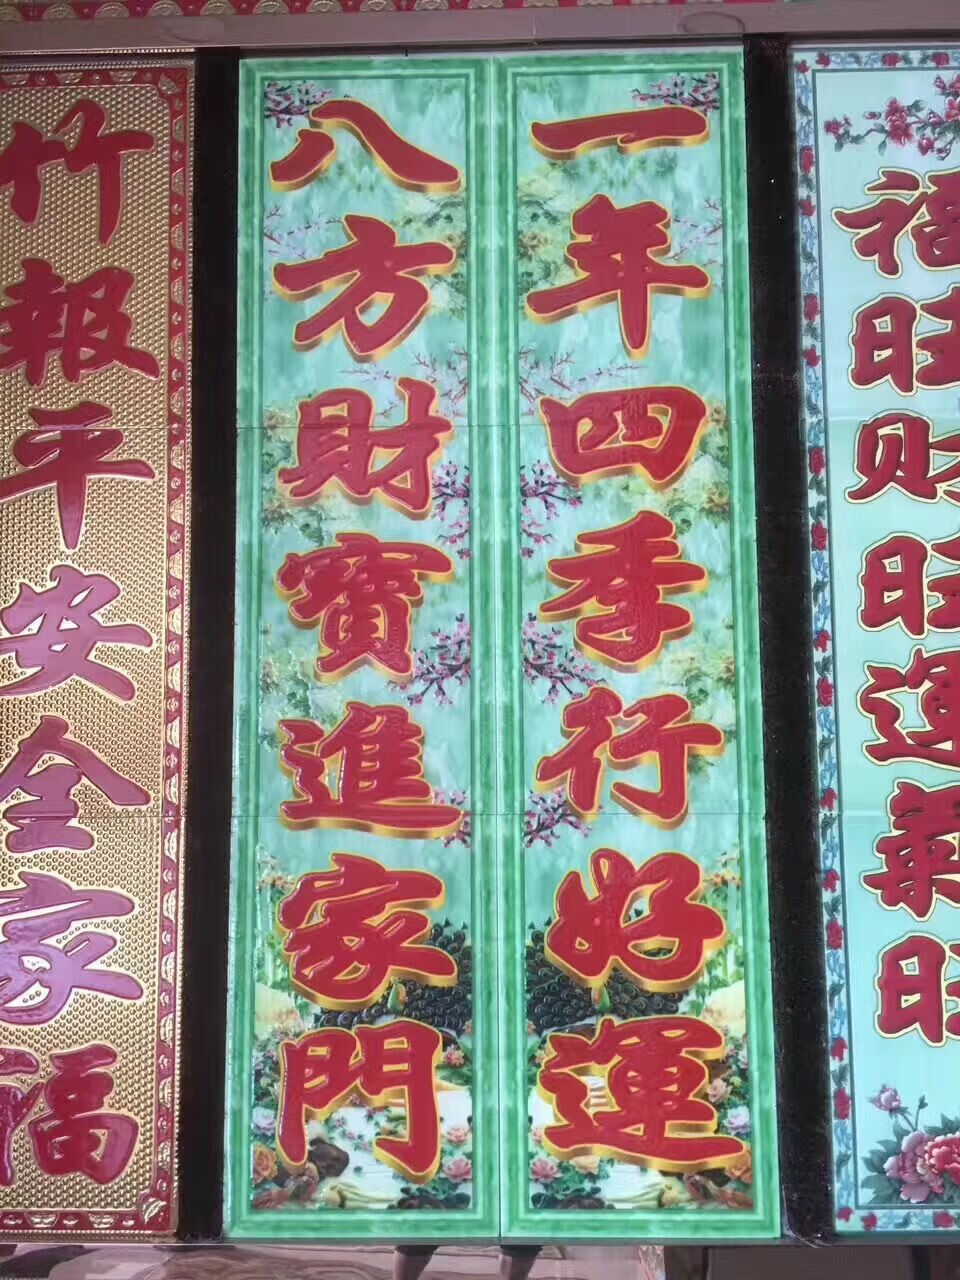 福旺财旺運氣旺
一年四季行好運
八方財寶進家門
竹報平安全家福